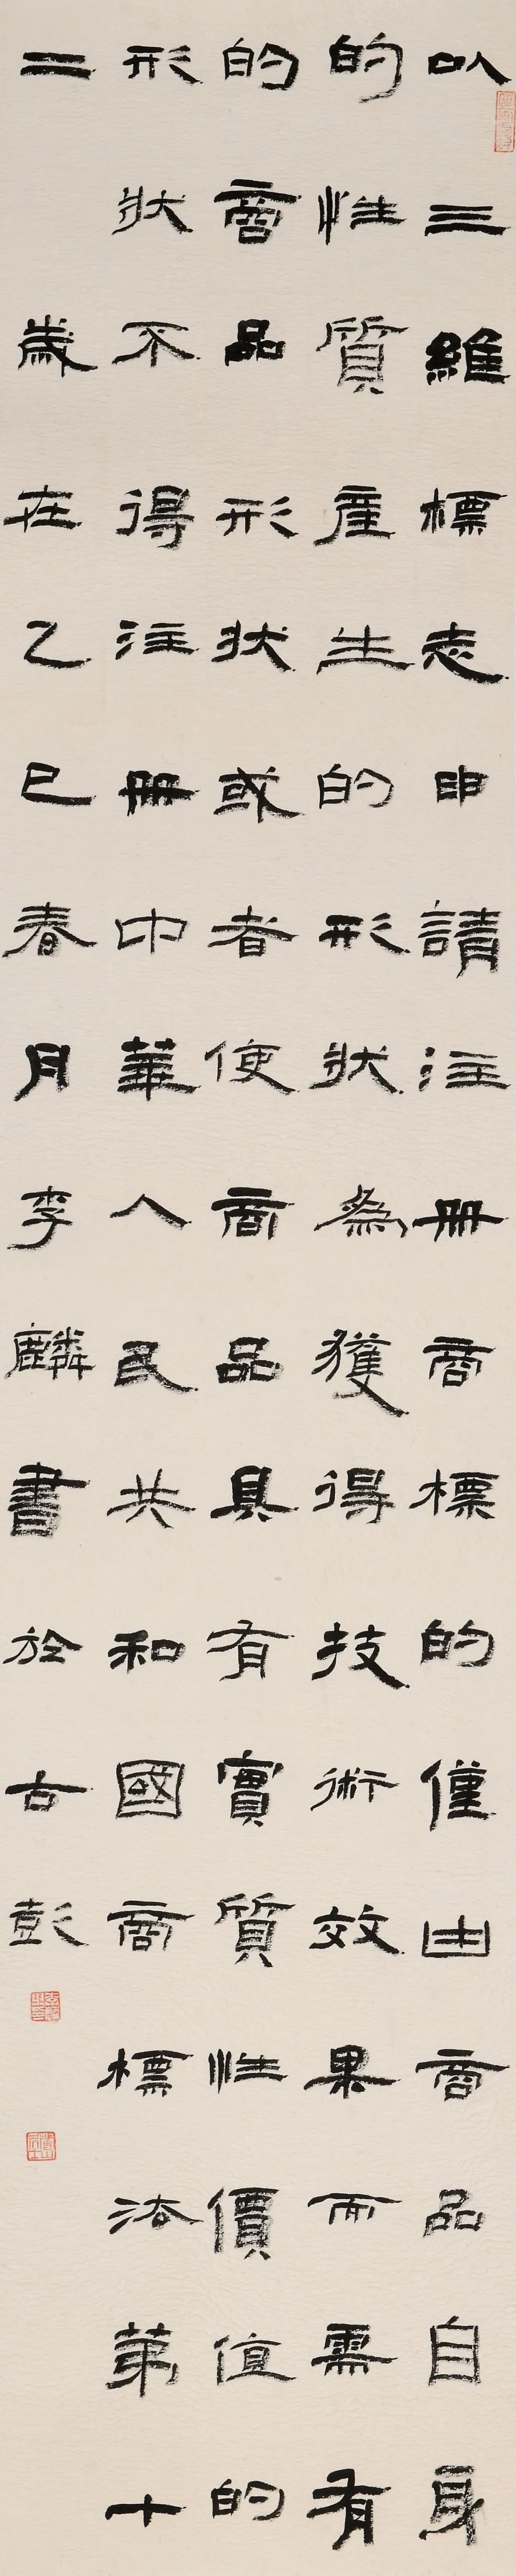 以三維標志申請注冊商標的僅由商品自身
的性質產生的形狀為獲得技術效果而需有
的商品形狀或者使商品具有實質性價值的
形狀不得注冊中華人民共和國商標法第十
二 歲在乙巳春月李麟書於古彭